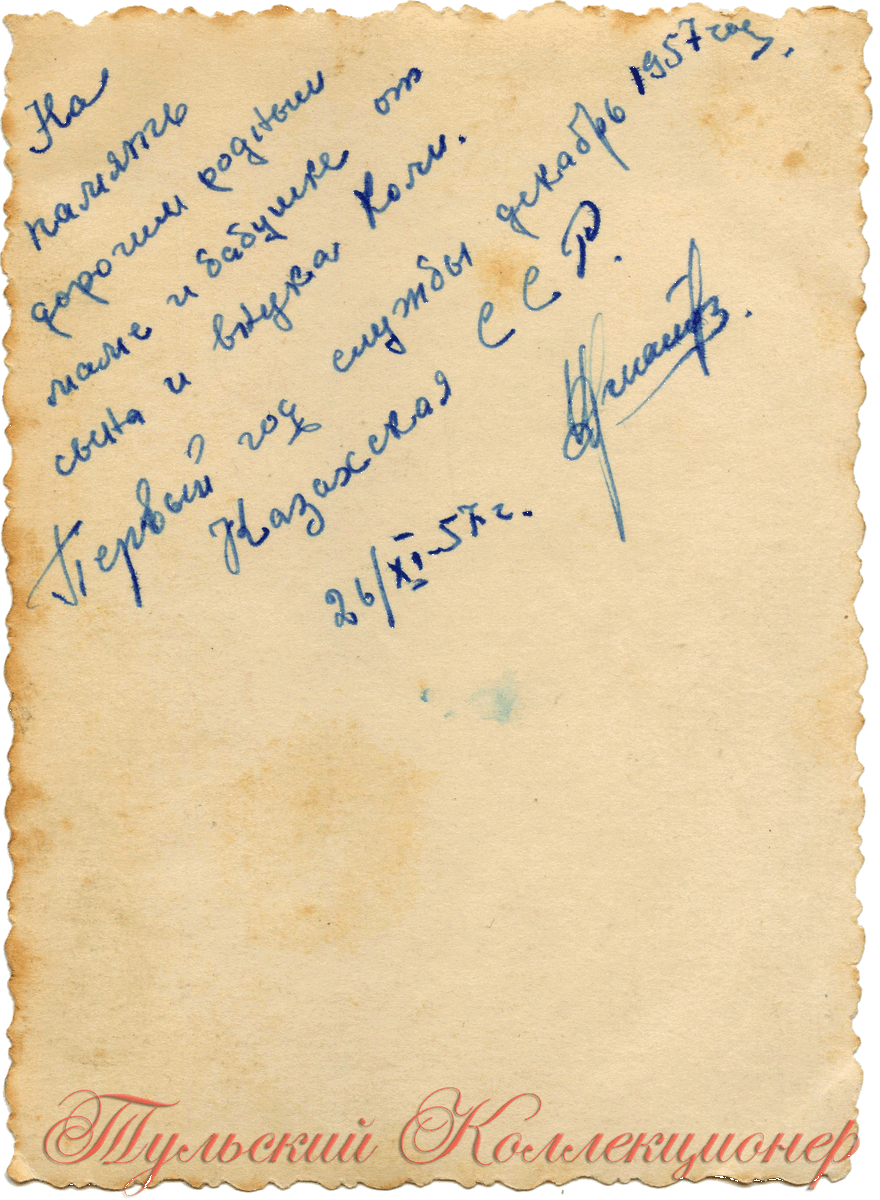 На
память
дорогим родным
маме и бабушке от
сына и внука Коли.
Первый год службы декабрь 1957 год.
Казахская ССР.
26/XI-57 г.
Тульский Коллекционер